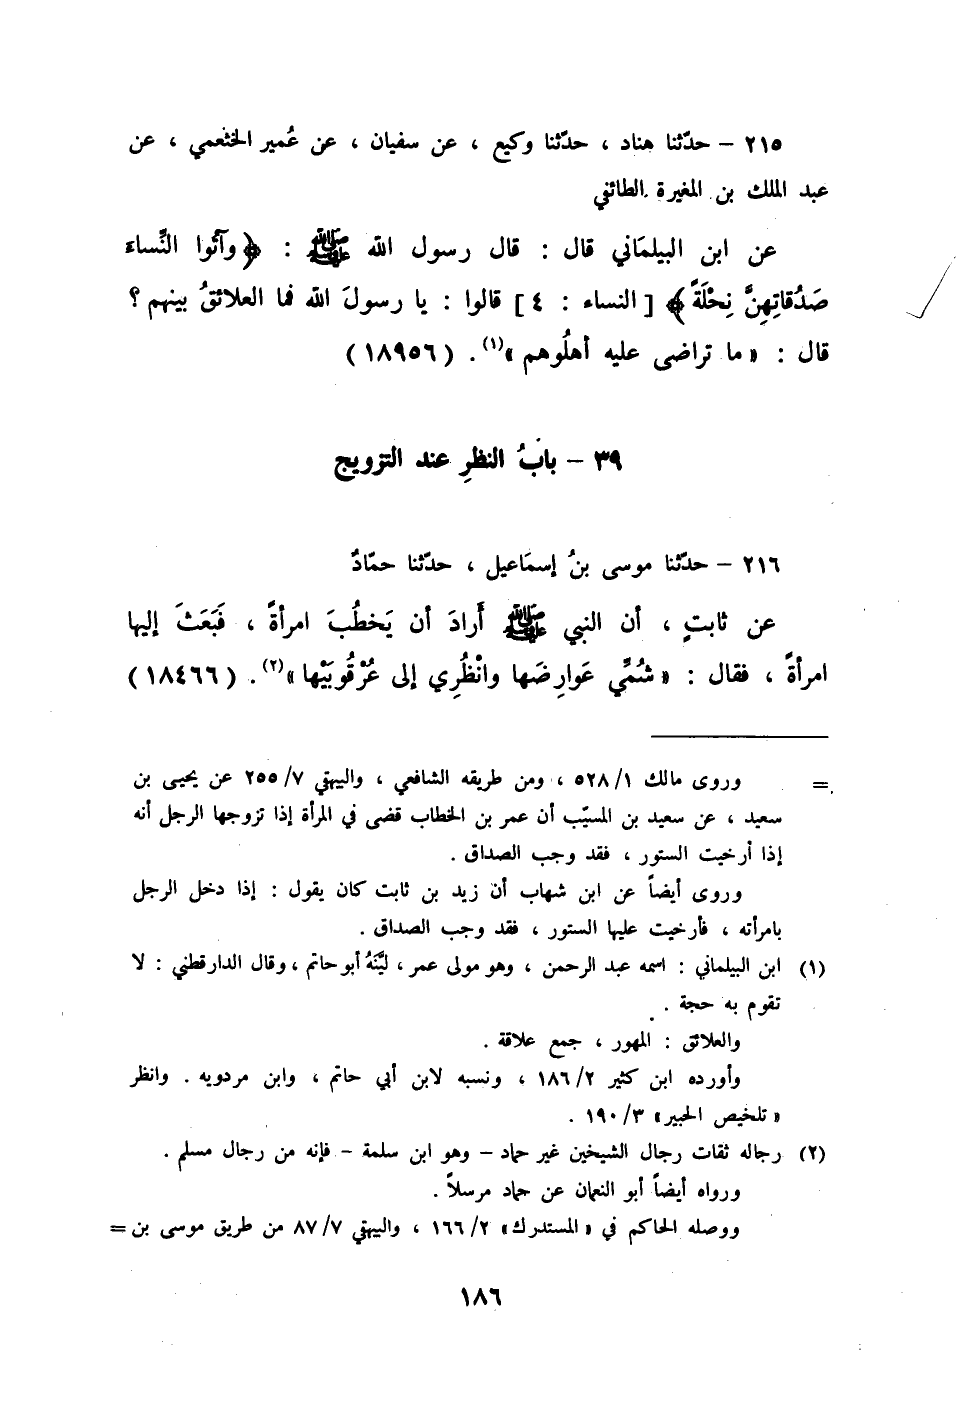 ٢١٥ – حدّثنا هناد ، حدّثنا وكيع ، عن سفيان ، عن عُمير الخثعمي ، عن
عبد الملك بن المغيرة الطائفي
عن ابن البيلمَاني قال : قال رسول الله ﷺ : ﴿وآتُوا النِّساءَ
صَدُقاتِهِنَّ نِحْلَةً﴾ [ النساء : ٤ ] قالوا : يا رسولَ الله فما العلائقُ بينهم ؟
قال : « ما تراضى عليه أهلُوهم »(١) . ( ١٨٩٥٦ )
٣٩ – بابُ النظرِ عند التزويج
٢١٦ – حدّثنا موسى بنُ إسمَاعيل ، حدّثنا حمّادٌ
عن ثابتٍ ، أن النبي ﷺ أَرادَ أن يَخطُبَ امرأةً ، فَبَعَثَ إليها
امرأةً ، فقال : « شُمِّي عَوارِضَها وانْظُرِي إلى عُرْقُوبَيْها »(٢) . ( ١٨٤٦٦ )
= وروى مالك ١/ ٥٢٨ ، ومن طريقه الشافعي ، والبيهقي ٧/ ٢٥٥ عن يحيى بن
سعيد ، عن سعيد بن المسيّب أن عمر بن الخطاب قضى في المرأة إذا تزوجها الرجل أنه
إذا أرخيت الستور ، فقد وجب الصداق .
وروى أيضاً عن ابن شهاب أن زيد بن ثابت كان يقول : إذا دخل الرجل
بامرأته ، فأرخيت عليها الستور ، فقد وجب الصداق .
(١) ابن البيلماني : اسمه عبد الرحمن ، وهو مولى عمر ، ليَّنَهُ أبو حاتم ، وقال الدارقطني : لا
تقوم به حجة .
والعلائق : المهور ، جمع علاقة .
وأورده ابن كثير ٢/ ١٨٦ ، ونسبه لابن أبي حاتم ، وابن مردويه . وانظر
« تلخيص الحبير » ٣/ ١٩٠ .
(٢) رجاله ثقات رجال الشيخين غير حماد – وهو ابن سلمة – فإنه من رجال مسلم .
ورواه أيضاً أبو النعمان عن حماد مرسلاً .
ووصله الحاكم في « المستدرك » ٢/ ١٦٦ ، والبيهقي ٧/ ٨٧ من طريق موسى بن =
١٨٦